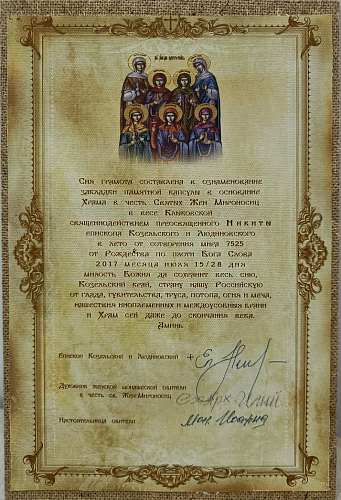 Сия грамота составлена в ознаменование
закладки памятной капсулы в основание
Храма в честь Святых Жен Мироносиц
в веси Клыковской
священнодействием преосвященного Никиты
епископа Козельского и Людиновского
в лето от сотворения мира 7525
от Рождества по плоти Бога Слова
2017 месяца июля 15/28 дня
милость Божия да сохранит весь сию,
Козельский край, страну нашу Российскую
от глада, губительства, труса, потопа, огня и меча,
нашествия иноплеменных и междоусобныя брани
и Храм сей даже до скончания века.
Аминь.
Епископ Козельский и Людиновский
+ Еп
Духовник женской монашеской обители
в честь св. Жен Мироносиц
Настоятельница обители